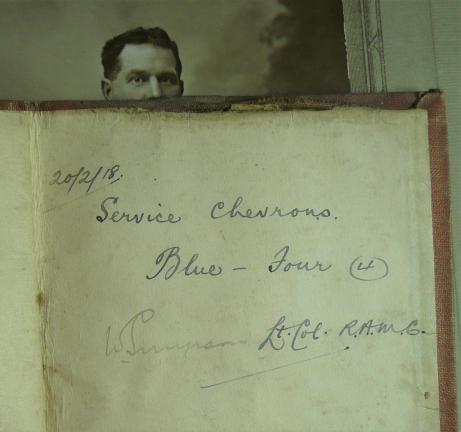 20/2/18.
Service Chevrons.
Blue - Four (4)
W Simpson Lt. Col. R.A.M.C.